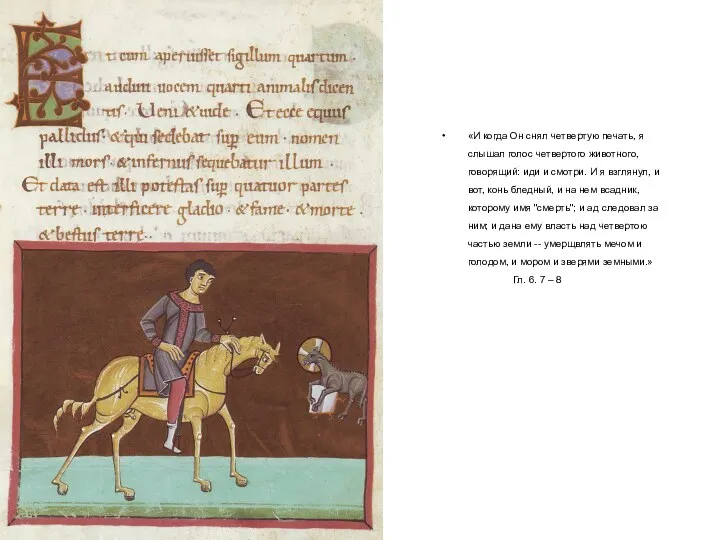 Et cum aperuisset sigillum quartum ·
audiui uocem quarti animalis dicen
tis · Ueni & uide · Et ecce equus
pallidus · & qui sedebat sup eum · nomen
illi mors · & infernus sequebatur illum ·
Et data est illi potestas sup quatuor partes
terre · interficere gladio · & fame · & morte ·
& bestiis terre ·
• «И когда Он снял четвертую печать, я
слышал голос четвертого животного,
говорящий: иди и смотри. И я взглянул, и
вот, конь бледный, и на нем всадник,
которому имя "смерть"; и ад следовал за
ним; и дана ему власть над четвертою
частью земли -- умерщвлять мечом и
голодом, и мором и зверями земными.»
Гл. 6. 7 – 8